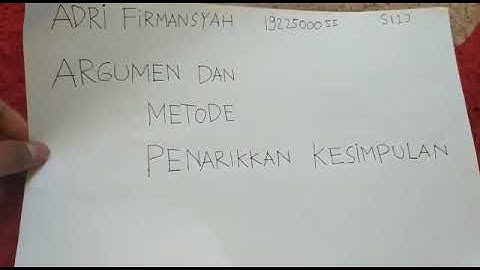 ADRI FIRMANSYAH 1922500055 S(1J
ARGUMEN DAN
METODE
PENARIKKAN KESIMPULAN